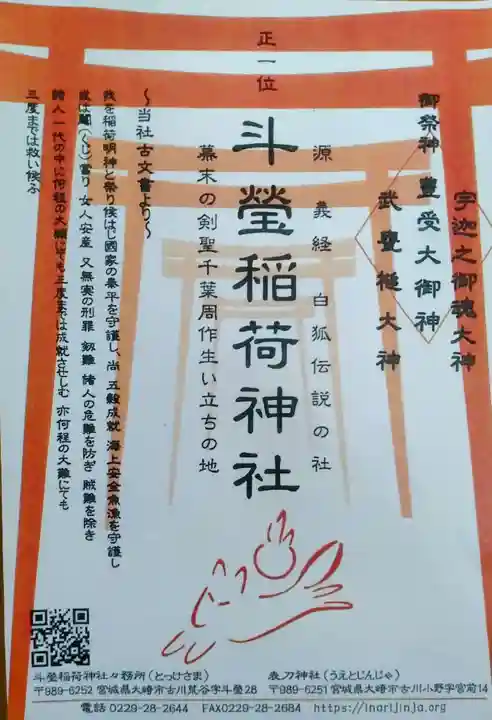 正一位
宇迦之御魂大神
御祭神 豊受大御神
武甕槌大神
源 義経 白狐伝説の社
斗瑩稲荷神社
幕末の剣聖千葉周作生い立ちの地
～当社古文書より～
我を稲荷明神と祭り候はし國家の泰平を守護し、尚 五穀成就 海上安全魚漁を守護し
或は鬮(くじ)當り 女人安産 又無実の刑罪 剱難 諸人の危難を防ぎ 賊難を除き
諸人一代の中に何程の大願にても三度までは成就させしむ 亦何程の大難にても
三度までは救い候ふ
斗瑩稲荷神社々務所(とっけさま)
〒989-6252 宮城県大崎市古川荒谷字斗瑩28
表刀神社(うえとじんじゃ)
〒989-6251 宮城県大崎市古川小野字宮前14
電話 0229-28-2644 FAX0229-28-2684 https://inorijinja.org